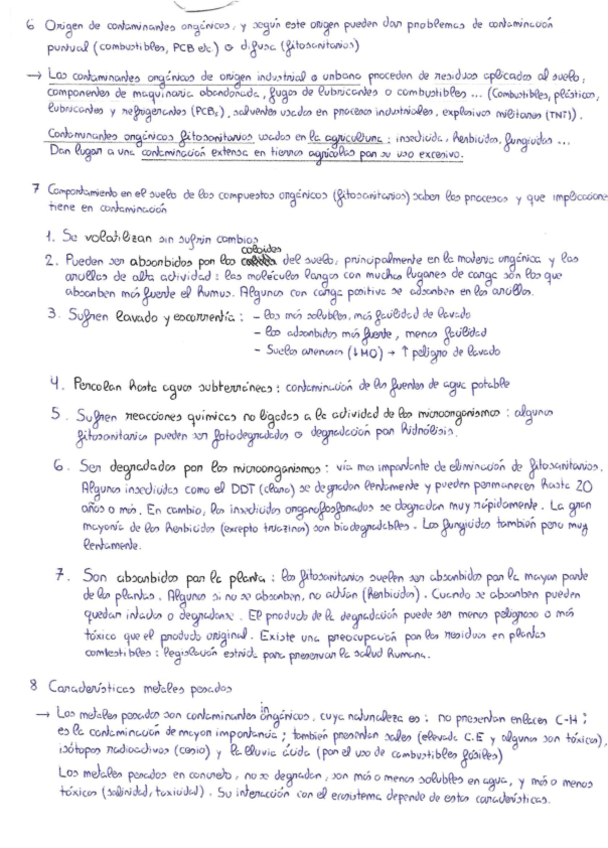 6 Origen de contaminantes orgánicos, y según este origen pueden dar problemas de contaminación
puntual (combustibles, PCB etc) o difusa (fitosanitarios)
→ Los contaminantes orgánicos de origen industrial o urbano proceden de residuos aplicados al suelo,
componentes de maquinaria abandonada, fugas de lubricantes o combustibles ... (Combustibles, plásticos,
lubricantes y refrigerantes (PCBs), solventes usados en procesos industriales, explosivos militares (TNT)).
Contaminantes orgánicos fitosanitarios usados en la agricultura: insecticida, herbicidas, fungicidas ...
Dan lugar a una contaminación extensa en tierras agrícolas por su uso excesivo.
7 Comportamiento en el suelo de los compuestos orgánicos (fitosanitarios) saber los procesos y que implicaciones
tiene en contaminación
1. Se volatilizan sin sufrir cambios
2. Pueden ser absorbidos por los coloides del suelo, principalmente en la materia orgánica y las
arcillas de alta actividad: las moléculas largas con muchos lugares de carga son los que
absorben más fuerte el humus. Algunos con carga positiva se adsorben en las arcillas.
3. Sufren lavado y escorrentía: - los más solubles, más facilidad de lavado
- los adsorbidos más fuerte, menos facilidad
- Suelos arenosos (↓MO) → ↑ peligro de lavado
4. Percolan hasta aguas subterráneas: contaminación de las fuentes de agua potable
5. Sufren reacciones químicas no ligadas a la actividad de los microorganismos: algunos
fitosanitarios pueden ser fotodegradados o degradación por hidrólisis.
6. Ser degradados por los microorganismos: vía mas importante de eliminación de fitosanitarios.
Algunos insecticidas como el DDT (cloro) se degradan lentamente y pueden permanecer hasta 20
años o más. En cambio, los insecticidas organofosforados se degradan muy rápidamente. La gran
mayoría de los herbicidas (excepto triazinas) son biodegradables. Los fungicidas también pero muy
lentamente.
7. Son absorbidos por la planta: los fitosanitarios suelen ser absorbidos por la mayor parte
de las plantas. Algunos si no se absorben, no actúan (herbicidas). Cuando se absorben pueden
quedar intactos o degradarse. El producto de la degradación puede ser menos peligroso o más
tóxico que el producto original. Existe una preocupación por los residuos en plantas
comestibles: legislación estricta para preservar la salud humana.
8 Características metales pesados
→ Los metales pesados son contaminantes inorgánicos, cuya naturaleza es: no presentan enlaces C-H;
es la contaminación de mayor importancia; también presentan sales (elevada C.E y algunos son tóxicos),
isótopos radioactivos (cesio) y la lluvia ácida (por el uso de combustibles fósiles)
Los metales pesados en concreto, no se degradan, son más o menos solubles en agua, y más o menos
tóxicos (salinidad, toxicidad). Su interacción con el ecosistema depende de estas características.